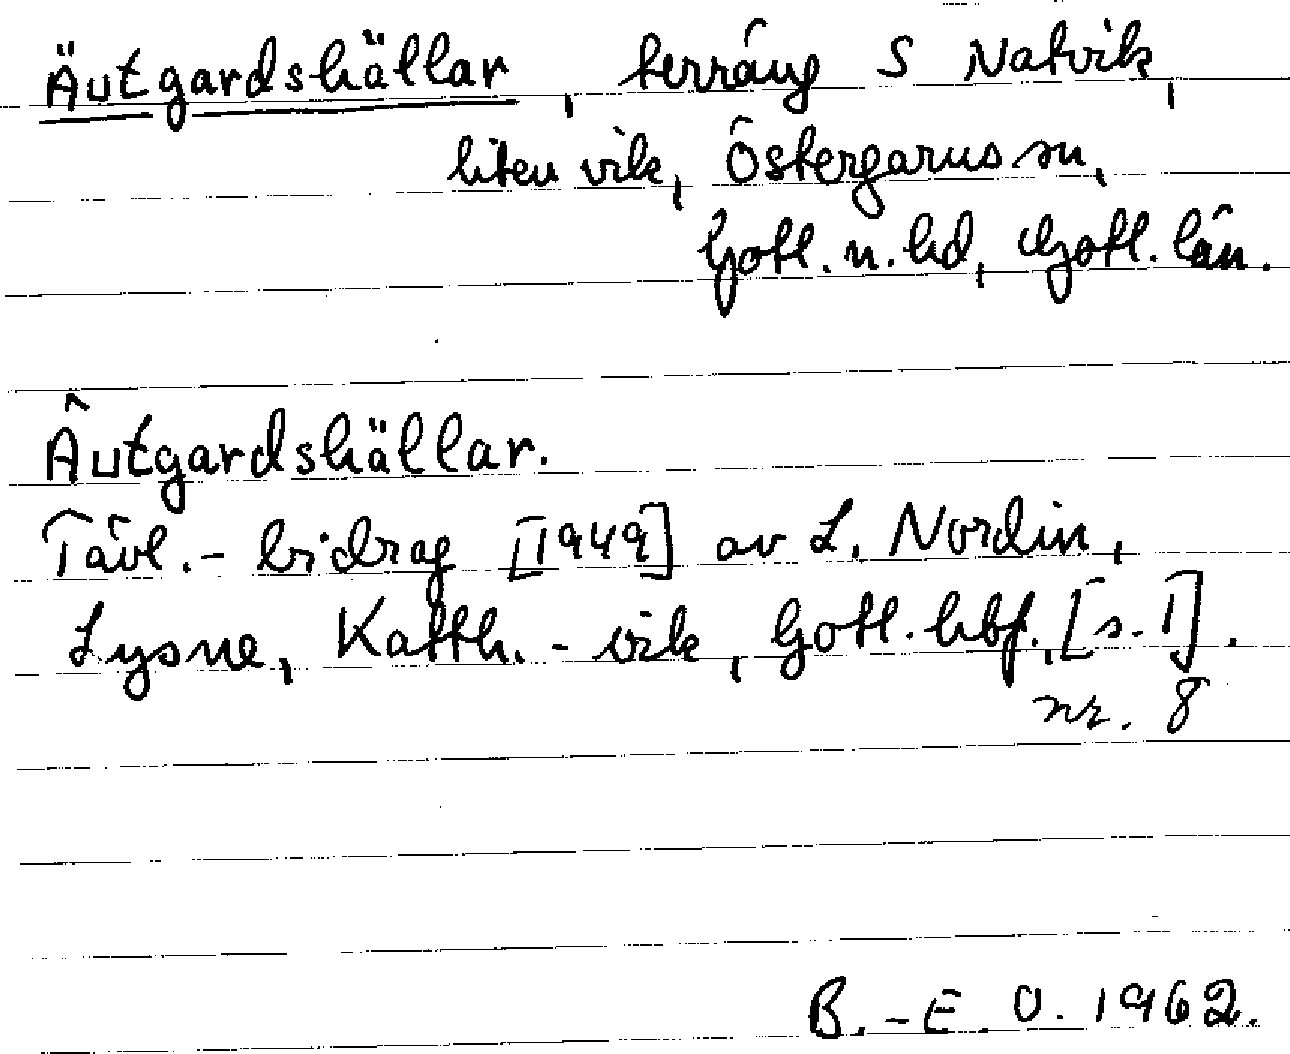 Äutgardshällar, terräng S Natvik,
liten vik, Östergarns sn,
Gotl. n. hd, Gotl. län.
Äutgardshällar.
Tävl.-bidrag [1949] av L. Nordin,
Lysne, Katth.-vik, Gotl. hbf., [s. 1].
nr. 8
B.-E. O. 1962.